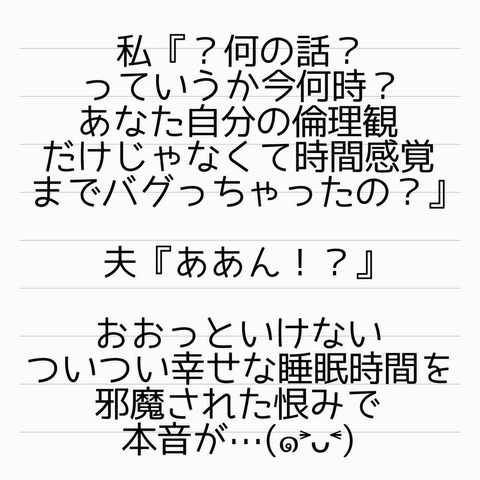 私『？何の話？
っていうか今何時？
あなた自分の倫理観
だけじゃなくて時間感覚
までバグっちゃったの？』
夫『ああん！？』
おおっといけない
ついつい幸せな睡眠時間を
邪魔された恨みで
本音が…(๑˃̵ᴗ˂̵)